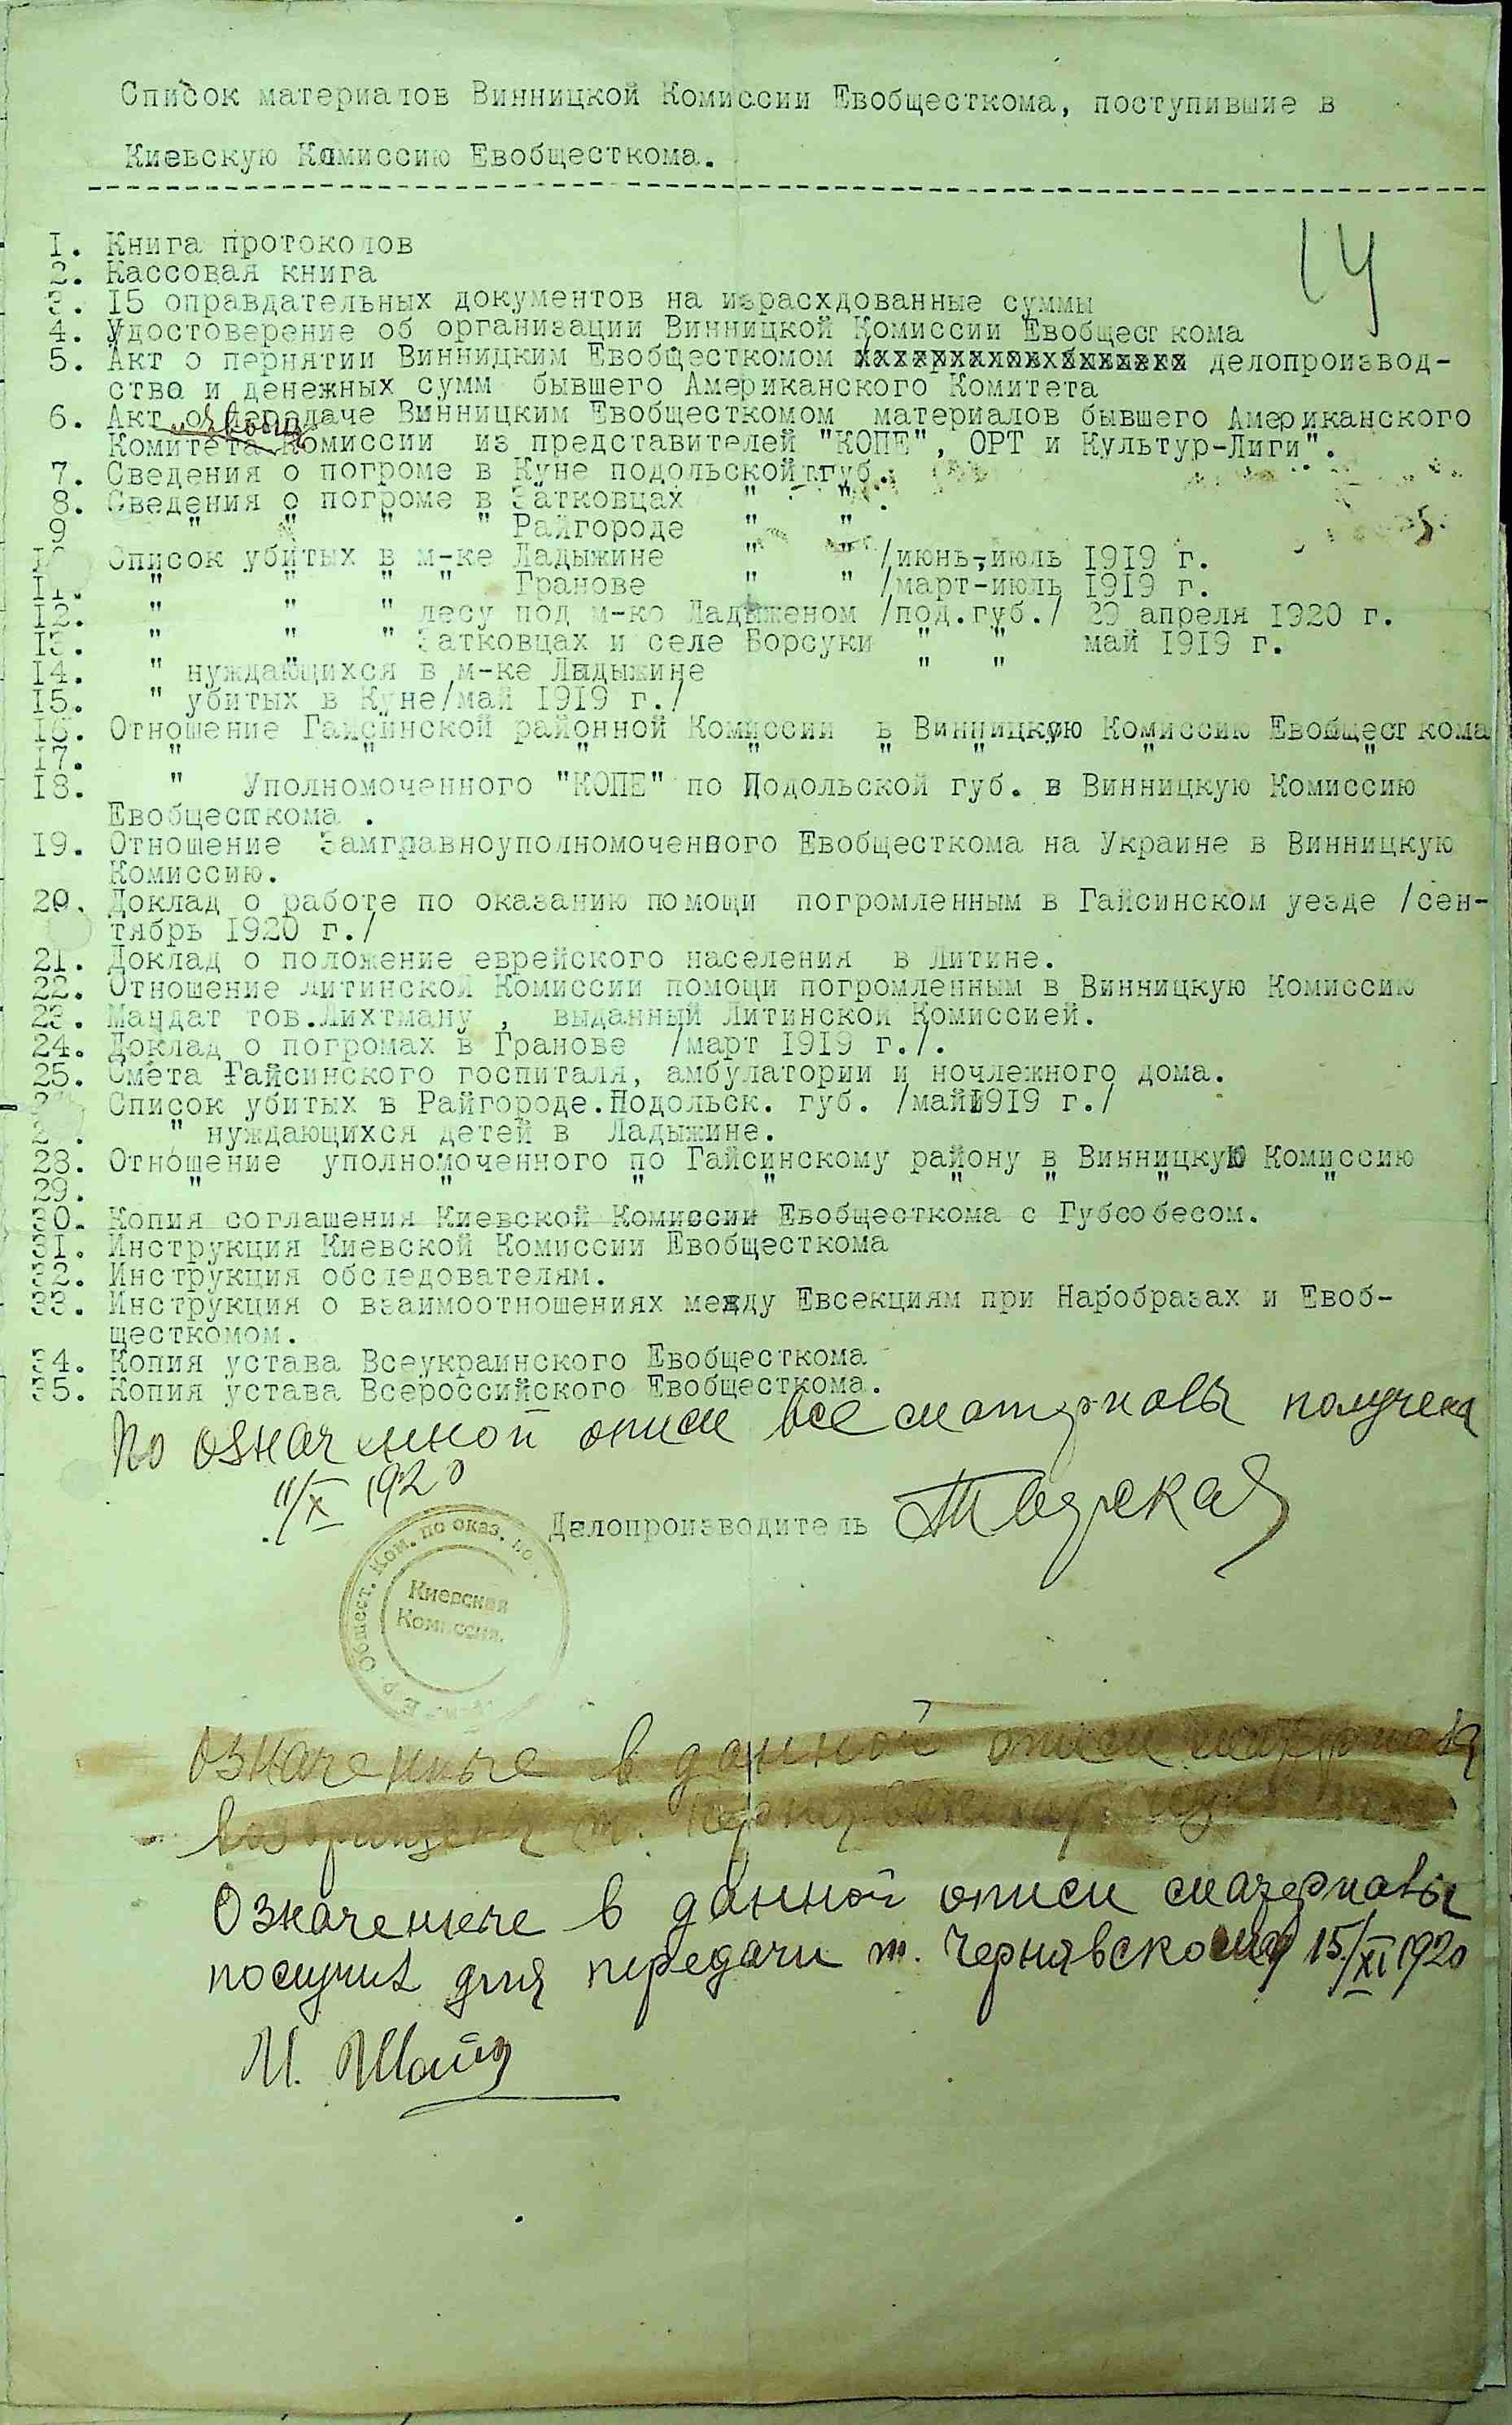 Список материалов Винницкой Комиссии Евобщесткома, поступившие в
Киевскую Комиссию Евобщесткома.
14
I. Книга протоколов
2. Кассовая книга
3. I5 оправдательных документов на израсхдованные суммы
4. Удостоверение об организации Винницкой Комиссии Евобщест кома
5. Акт о пернятии Винницким Евобщесткомом делопроизвод-
ства и денежных сумм бывшего Американского Комитета
6. Акт о передаче Винницким Евобщесткомом материалов бывшего Американского
Комитета Комиссии из представителей "КОПЕ", ОРТ и Культур-Лиги".
7. Сведения о погроме в Куне подольской губ.
8. Сведения о погроме в Затковцах " " .
9 " " " " Райгороде " "
I0 Список убитых в м-ке Ладыжине " " /июнь-июль I9I9 г.
II. " " " " Гранове " " /март-июль I9I9 г.
I2. " " " лесу под м-ко Ладыженом /под.губ./ 29 апреля I920 г.
I3. " " " Затковцах и селе Борсуки " " май I9I9 г.
I4. " нуждающихся в м-ке Ладыжине " "
I5. " убитых в Куне/май I9I9 г./
I6. Отношение Гайсинской районной Комиссии в Винницкую Комиссию Евобщест кома
I7. " " " " " " " "
I8. " Уполномоченного "КОПЕ" по Подольской губ. в Винницкую Комиссию
Евобщесткома .
I9. Отношение Замгравноуполномоченного Евобщесткома на Украине в Винницкую
Комиссию.
20. Доклад о работе по оказанию помощи погромленным в Гайсинском уезде /сен-
тябрь I920 г./
2I. Доклад о положение еврейского населения в Литине.
22. Отношение Литинской Комиссии помощи погромленным в Винницкую Комиссию
23. Мандат тов.Лихтману , выданный Литинской Комиссией.
24. Доклад о погромах в Гранове /март I9I9 г./.
25. Смета Гайсинского госпиталя, амбулатории и ночлежного дома.
2 Список убитых в Райгороде.Подольск. губ. /майI9I9 г./
2 . " нуждающихся детей в Ладыжине.
28. Отношение уполномоченного по Гайсинскому району в Винницкую Комиссию
29. " " " " " " " "
30. Копия соглашения Киевской Комиссии Евобщесткома с Губсобесом.
3I. Инструкция Киевской Комиссии Евобщесткома
32. Инструкция обследователям.
33. Инструкция о взаимоотношениях между Евсекциям при Наробразах и Евоб-
щесткомом.
34. Копия устава Всеукраинского Евобщесткома
35. Копия устава Всероссийского Евобщесткома.
По означенной описи все материалы получена
11/X 1920
Делопроизводитель
Общест. Ком. по оказ. по
Киевская
Комиссия.
Означенные в данной описи материалы
возвращены т.
Означеные в данной описи материалы
получил для передачи т. Чернявскому 15/XI 1920